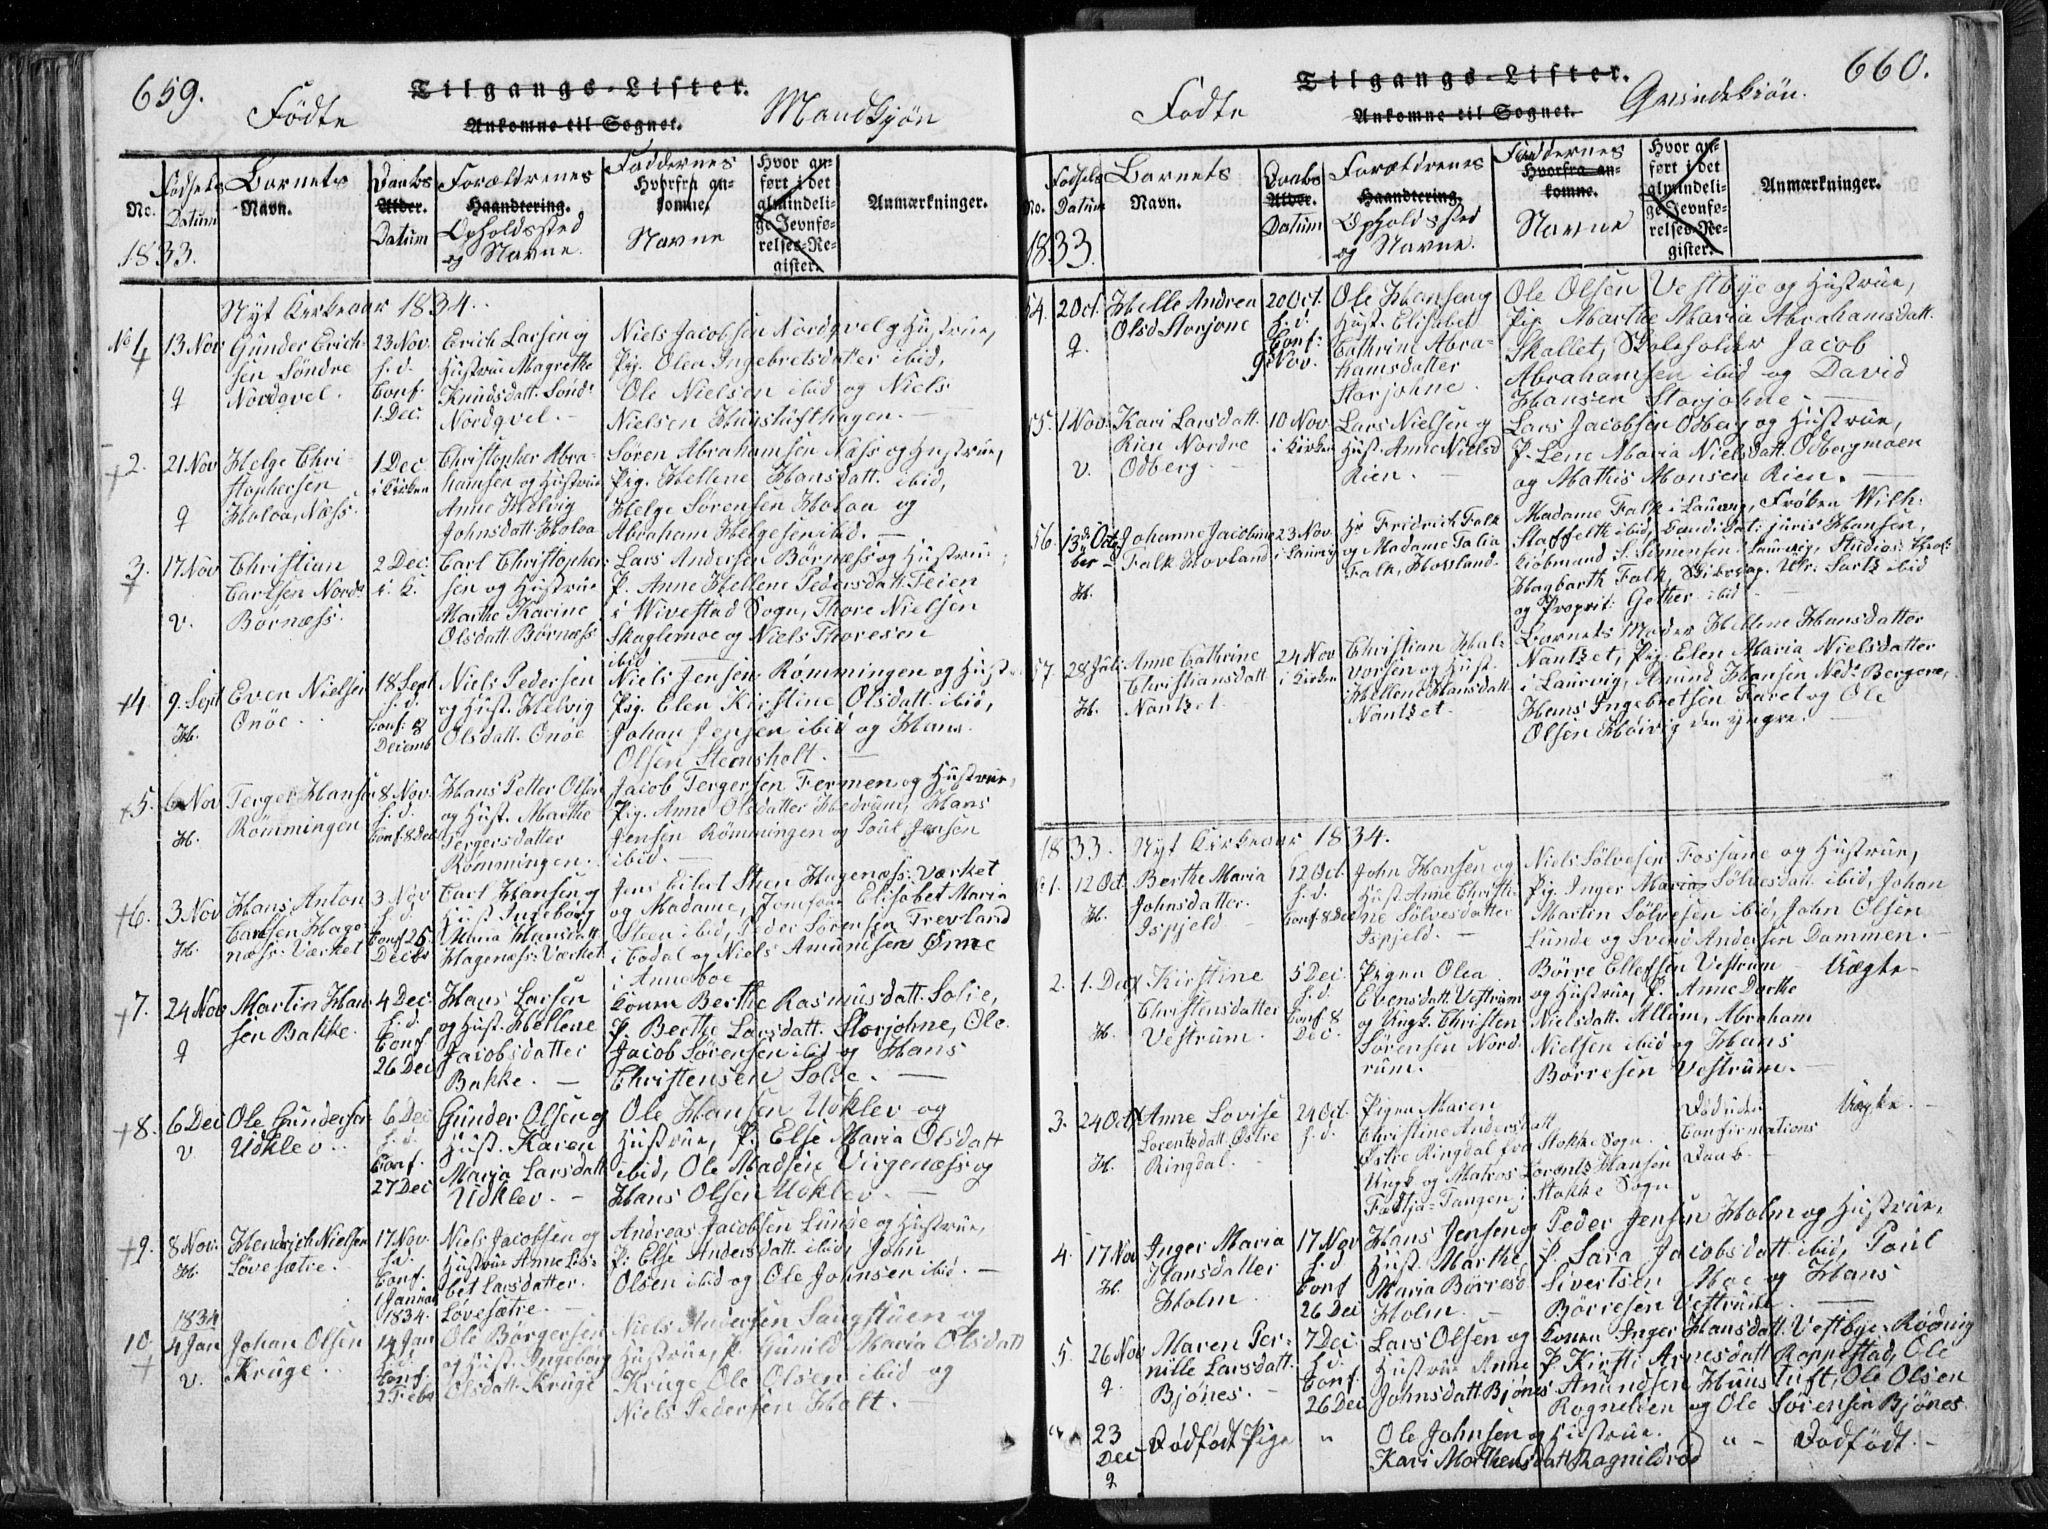 659.
Tilgangs-Lister.
Fødte
Mandkjøn
Ankomne til Sognet.
No.
Fødsels
Datum
1833.
Barnets
Navn.
Daabs
Alder.
Datum
Forældrenes
Haandtering.
Opholdssted
og Navne.
Faddernes
Hvorfra an-
komne.
Navne
Hvor an-
ført i det
almindeli-
ge Jevnfø-
relses-Re-
gister.
Anmærkninger.
Nyt Kirkeaar 1834.
No 1
13 Nov
Gunder Erich-
sen Søndre
Nordqvel.
23 Nov.
h. d.
Conf.
1 Dec.
Erich Larsen og
Hustrue Magrethe
Knudsdatt. Sønd:
Nordqvel. -
Niels Jacobsen Nordqvel og Hustrue,
Pig. Olea Ingebretsdatter ibid,
Ole Nielsen ibid og Niels
Nielsen Hunstufthagen. -
2.
21 Nov
Helge Chri-
stophersen
Holoa, Næss
1 Dec
i Kirken
Christopher Abra-
hamsen og Hustrue
Anne Helvig
Johnsdatt. Holoa
Søren Abrahamsen Næss og Hustrue,
Pig. Hellene Hansdatt. ibid,
Helge Sørensen Holoa og
Abraham Helgesen ibid. -
3.
17 Nov
v.
Christian
Carlsen Nordr
Børnæss.
2 Dec.
i. K.
Carl Christopher-
sen og Hustrue
Marthe Karine
Olsdatt. Børnæss
Lars Andersen Børnæss og Hustrue,
P. Anne Hellene Pedersdatt. Teien
i Wivestad Sogn, Thore Nielsen
Skaglemoe og Niels Thoresen
ibid
4.
9. Sept
H.
Even Nielsen
Onøe.
18 Sept
h. d.
Conf. 8
Decemb
Niels Pedersen
og Hust. Helvig
Olsdatt. Onøe
Niels Jensen Rømmingen og Hust
Pig. Elen Kirstine Olsdatt. ibid,
Johan Jensen ibid og Hans
Olsen Steensholt. -
5.
6 Nov
H.
Terger Hansen
Rømmingen
8 Nov.
h. d.
Conf 8 Dec
Hans Petter Olsen
og Hust. Marthe
Tergersdatter
Rømmingen.
Jacob Tergersen Fermen og Hustrue,
Pig. Anne Olsdatter Hedrum, Hans
Jensen Rømmingen og Poul Jensen
ibid. -
6.
3 Nov
H.
Hans Anton
Carlsen Hage-
næss-Værket
3 Nov
h. d.
Conf 26
Decbr
Carl Hansen og
Hust. Ingeborg
Maria Hansdatt.
Hagenæss-Værket
Jens Eilert Steen Hagenæss-Værket
og Madame, Jomfrue Elisabet Maria
Steen ibid, Peder Sørensen Trevland
i Lodal og Niels Amundsen Ønne
i Anneboe
7.
24 Nov
Martin Han-
sen Bakke.
4 Dec.
h. d.
Conf
26 Dec
Hans Larsen
og Hust. Hellene
Jacobsdatter
Bakke. -
Konen Berthe Rasmusdatt. Solie,
P. Berthe Larsdatt. Storjohne, Ole
Jacob Sørensen ibid og Hans
Christensen Solie. -
8.
6 Dec
v
Ole Gundersen
Udklev.
6 Dec
h. d.
Conf.
27 Dec
Gunder Olsen og
Hust. Karen
Maria Larsdatt
Udklev. -
Ole Hansen Udklev og
Hustrue, P. Else Maria Olsdatt
ibid, Ole Madsen Virgenæss og
Hans Olsen Udklev. -
9.
8 Nov.
H.
Hendrich Nielsen
Løvesætre.
17 Nov.
h. d.
Conf.
1 Januar
1834.
Niels Jacobsen og
Hustrue Anne Lis-
bet Larsdatter.
Løvesætre. -
Andreas Jacobsen Lunde og Hustrue,
P. Else Andersdatt. ibid, John
Olsen ibid og Ole Johnsen ibid. -
1834
10
4 Jan
v.
Johan Olsen
Kruge.
14 Jan
h. d.
Conf
2 Febr
Ole Børgersen
og Hust. Ingeborg
Olsdatt. Kruge
Niels Andersen Saugstuen og
Hustrue, P. Gunild Maria Olsdatt
Kruge, Ole Olsen ibid og
Niels Pedersen Holt. -
660.
Tilgangs-Lister.
Fødte
Qvindekiøn.
Ankomne til Sognet.
No.
Fødsels
Datum
1833.
Barnets
Navn.
Daabs
Alder.
Datum
Forældrenes
Haandtering.
Opholdssted
og Navne.
Faddernes
Hvorfra an-
komne.
Navne
Hvor an-
ført i det
almindeli-
ge Jevnfø-
relses-Re-
gister.
Anmærkninger.
54.
20 Oct.
Helle Andrea
Olsd Storjone
20 Oct.
h. d.
Conf:
9 Nov.
Ole Hansen og
Hust. Elisabet
Cathrine Abra-
hamsdatter
Storjohne.
Ole Olsen Vestbye og Hustrue,
Pig. Marthe Maria Abrahamsdatt.
Skallet, Skoleholder Jacob
Abrahamsen ibid og David
Hansen Storjohne. -
55.
1 Nov.
v.
Kari Larsdatt.
Rien Nordre
Odberg
10 Nov
i Kirken
Lars Nielsen og
Hust. Anne Nielsd
Rien. -
Lars Jacobsen Odberg og Hustrue,
P. Lene Maria Nielsdatt. Odbergmoen
og Mathis Monsen Rien. -
56.
13de Octo
ber
H.
Johanne Jacobine
Falk Hovland
23 Nov
i Laurvig
Hr Fridrich Falk
og Madame Talia
Falk, Hovland.
Madame Falk i Laurvig, Frøken Wilh:
Staffelth ibid, Candidat: juris Hansen,
Kiøbmand S. Sømensen Laurvig, Studios: theol:
Hagbarth Falk, Sartz ibid
og Proprit: Gether ibid -
57.
28 Juli
H.
Anne Cathrine
Christiansdatt
Nantset.
24 Nov
i Kirken
Christian Hal-
vorsen og Hust.
Hellene Hansdatt.
Nantset. -
Barnets Moder Hellene Hansdatter
Nantset, Pig. Elen Maria Nielsdatter
i Laurvig, Amund Hansen Nedr Bergene,
Hans Ingebretsen Faret og Ole
Olsen Høivig den yngre. -
1833. Nyt Kirkeaar 1834.
No 1.
12 Oct.
H.
Berthe Maria
Johnsdatter.
Ispjeld
12 Oct.
h. d.
Conf. 8 Dec
John Hansen og
Hust. Anne Christi-
ne Sølvesdatter
Ispjeld. -
Niels Sølvesen Fossane og Hustrue,
Pig. Inger Maria Sølvesdatt. ibid, Johan
Martin Sølvesen ibid, John Olsen
Lunde og Svend Andersen Dammen. -
2.
1. Dec
H.
Kirstine
Christensdatter
Vestrum.
5 Dec.
h. d.
Conf 8
Dec.
Pigen Olea
Evensdatt. Vestrum
og Ungk. Christen
Sørensen Nord-
rum. -
Børre Ellefsen Vestrum
og Hustrue, P. Anne Dorthe
Nielsdatt. Allum, Abraham
Nielsen ibid og Hans
Børresen Vestrum. -
Uægte -
3.
24 Oct
H.
Anne Lovise
Lorentsdatt. Østre
Ringdal.
24 Oct.
h. d.
Pigen Maren
Christine Andersdatt
Østre Ringdal fra Stokke Sogn.
Ungk og Matros Lorents Hansen
Tangen i Stokke Sogn
Død uden
Confirmations
Daab. -
Uægte. -
4.
17 Nov
H.
Inger Maria
Hansdatter
Holm.
17 Nov
h. d
Conf
26 Dec
Hans Jensen og
Hust. Marthe
Maria Børresd
Holm. -
Peder Jensen Holm og Hustrue,
P. Sara Jacobsdatt ibid, Poul
Sivertsen Moe og Hans
Børresen Vestrum. -
5.
26 Nov
Maren Per-
nille Larsdatt.
Bjønes. -
7 Dec
h. d.
Conf.
26 Dec
Lars Olsen og
Hustrue Anne
Johnsdatt. Bjønes
Konen Inger Hansdatt. Vestbye-Rødnig
P. Kirsti Arnesdatt Roppestad, Ole
Amundsen Hunstuft, Ole Olsen
Rognelien og Ole Sørensen Bjønes
23
Dec
Dødfødt Pige
"
Ole Johnsen og Hustrue.
Kari Mathensdatt Ragnildrød
" -
Dødfødt. -